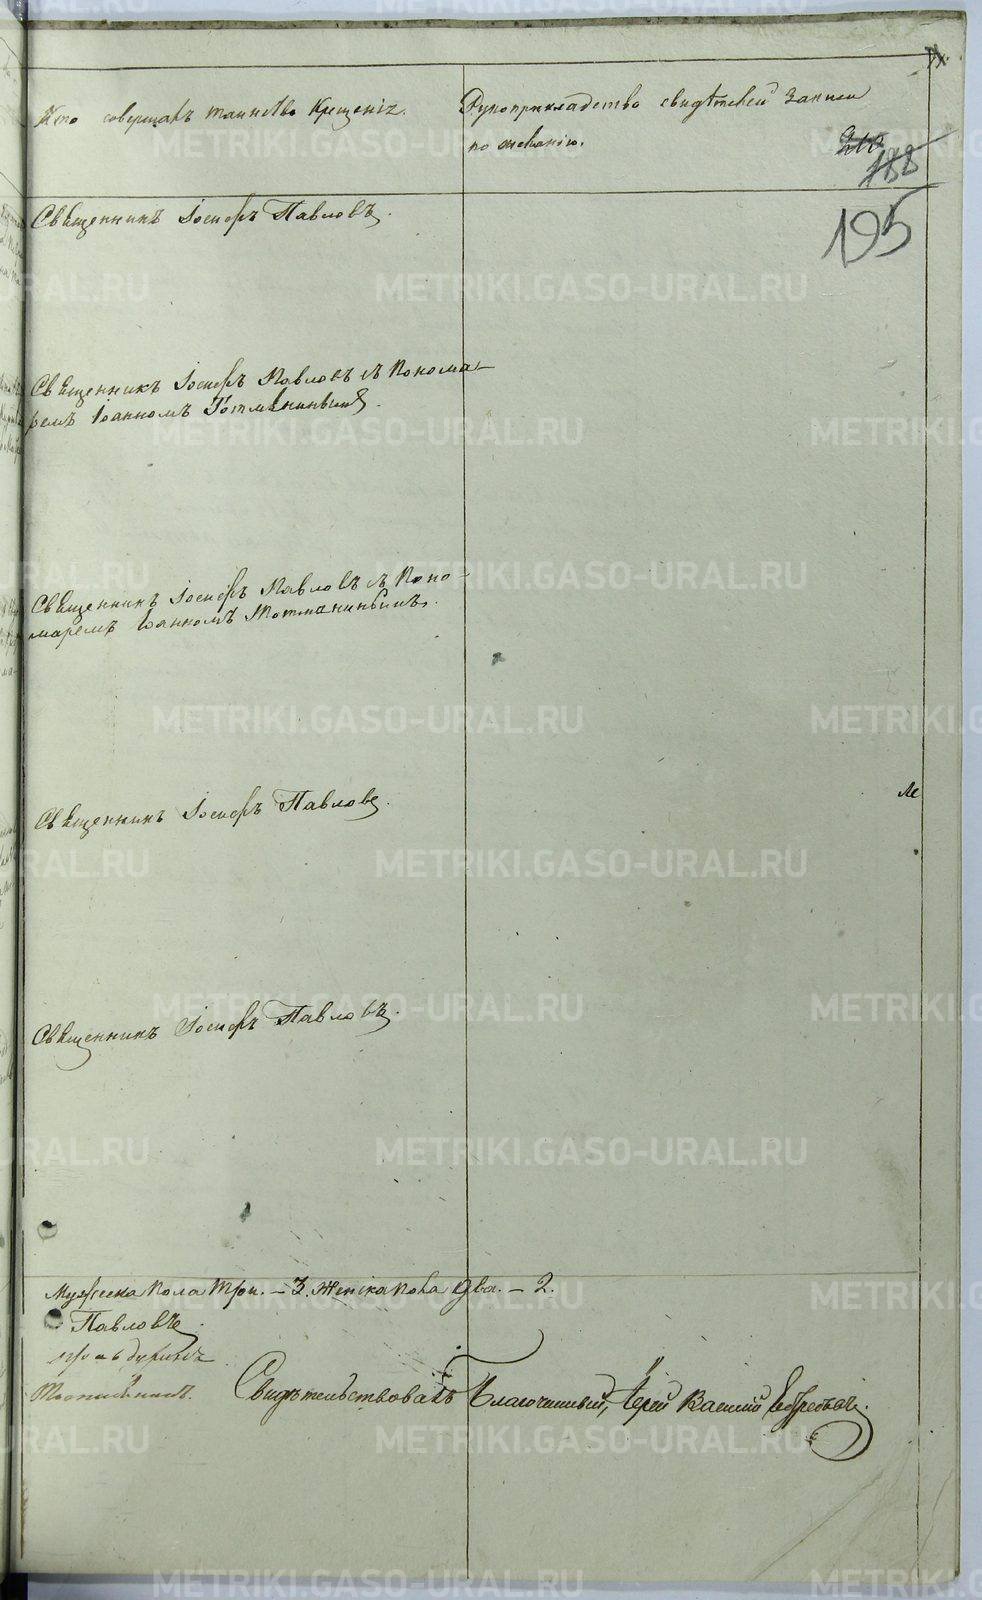 Кто совершалъ таинство Крещенія.
Рукоприкладство свидѣтелей записи
по желанію.
188
195
Священникъ Іосифъ Павловъ.
Священникъ Іосифъ Павловъ съ Понома-
ремъ Іоанномъ
Священникъ Іосифъ Павловъ съ Поно-
маремъ Іоанномъ
Священникъ Іосифъ Павловъ.
Священникъ Іосифъ Павловъ.
Мужеска пола три. – 3. Женска пола два. – 2.
Павловъ.
Свидѣтельствовалъ Благочинный, Іерей Василій
METRIKI.GASO-URAL.RU